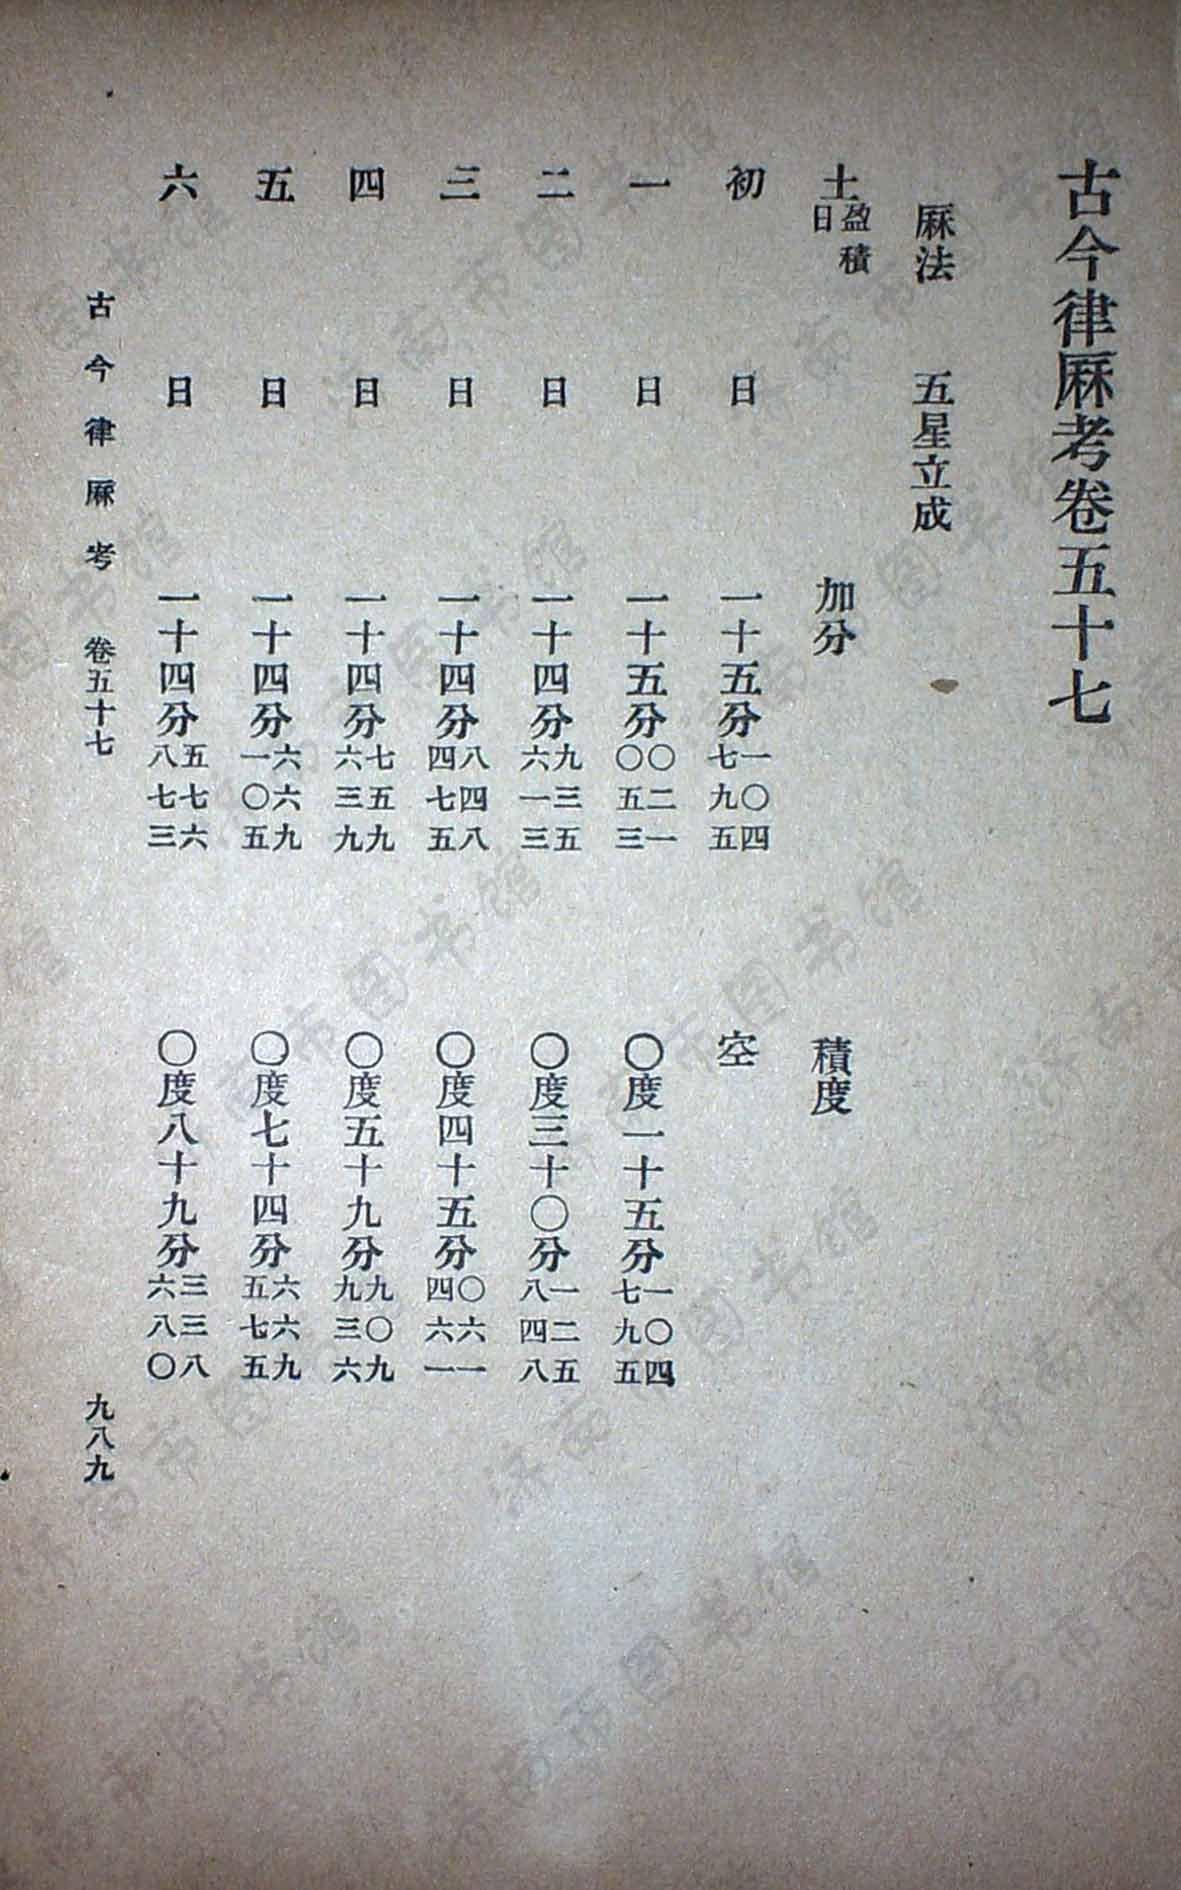 古今律厤考卷五十七
厤法　五星立成
土盈積日　加分　積度
初日　一十五分一〇四七九五　空
一日　一十五分〇二一〇五三　〇度一十五分一〇四七九五
二日　一十四分九三五六一三　〇度三十〇分一二五八四八
三日　一十四分八四八四七五　〇度四十五分〇六一四六一
四日　一十四分七五九六三九　〇度五十九分九〇九九三六
五日　一十四分六六九一〇五　〇度七十四分六六九五七五
六日　一十四分五七六八七三　〇度八十九分三三八六八〇
古今律厤考　卷五十七　九八九
济南市图书馆